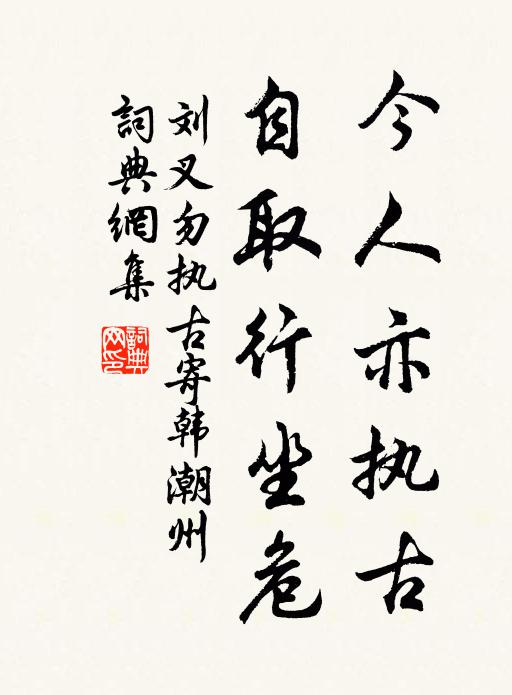 今人亦执古
自取行坐危
刘叉勿执古寄韩潮州
詞典網集
詞典
网印